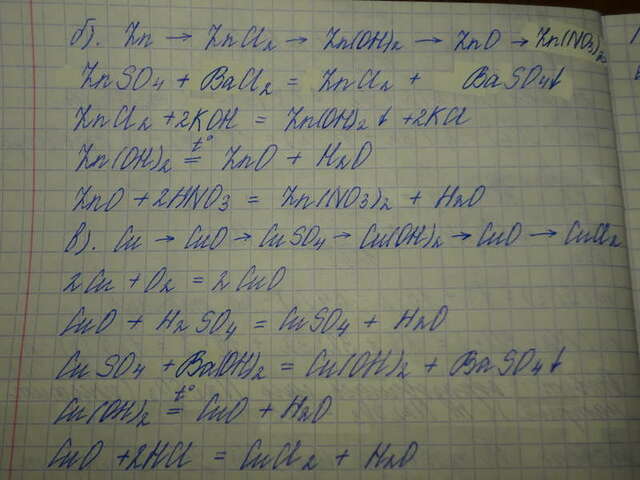 б). Zn → ZnCl2 → Zn(OH)2 → ZnO → Zn(NO3)2
ZnSO4 + BaCl2 = ZnCl2 + BaSO4↓
ZnCl2 + 2KOH = Zn(OH)2↓ + 2KCl
Zn(OH)2 =t° ZnO + H2O
ZnO + 2HNO3 = Zn(NO3)2 + H2O
в). Cu → CuO → CuSO4 → Cu(OH)2 → CuO → CuCl2
2Cu + O2 = 2CuO
CuO + H2SO4 = CuSO4 + H2O
CuSO4 + Ba(OH)2 = Cu(OH)2 + BaSO4↓
Cu(OH)2 =t° CuO + H2O
CuO + 2HCl = CuCl2 + H2O